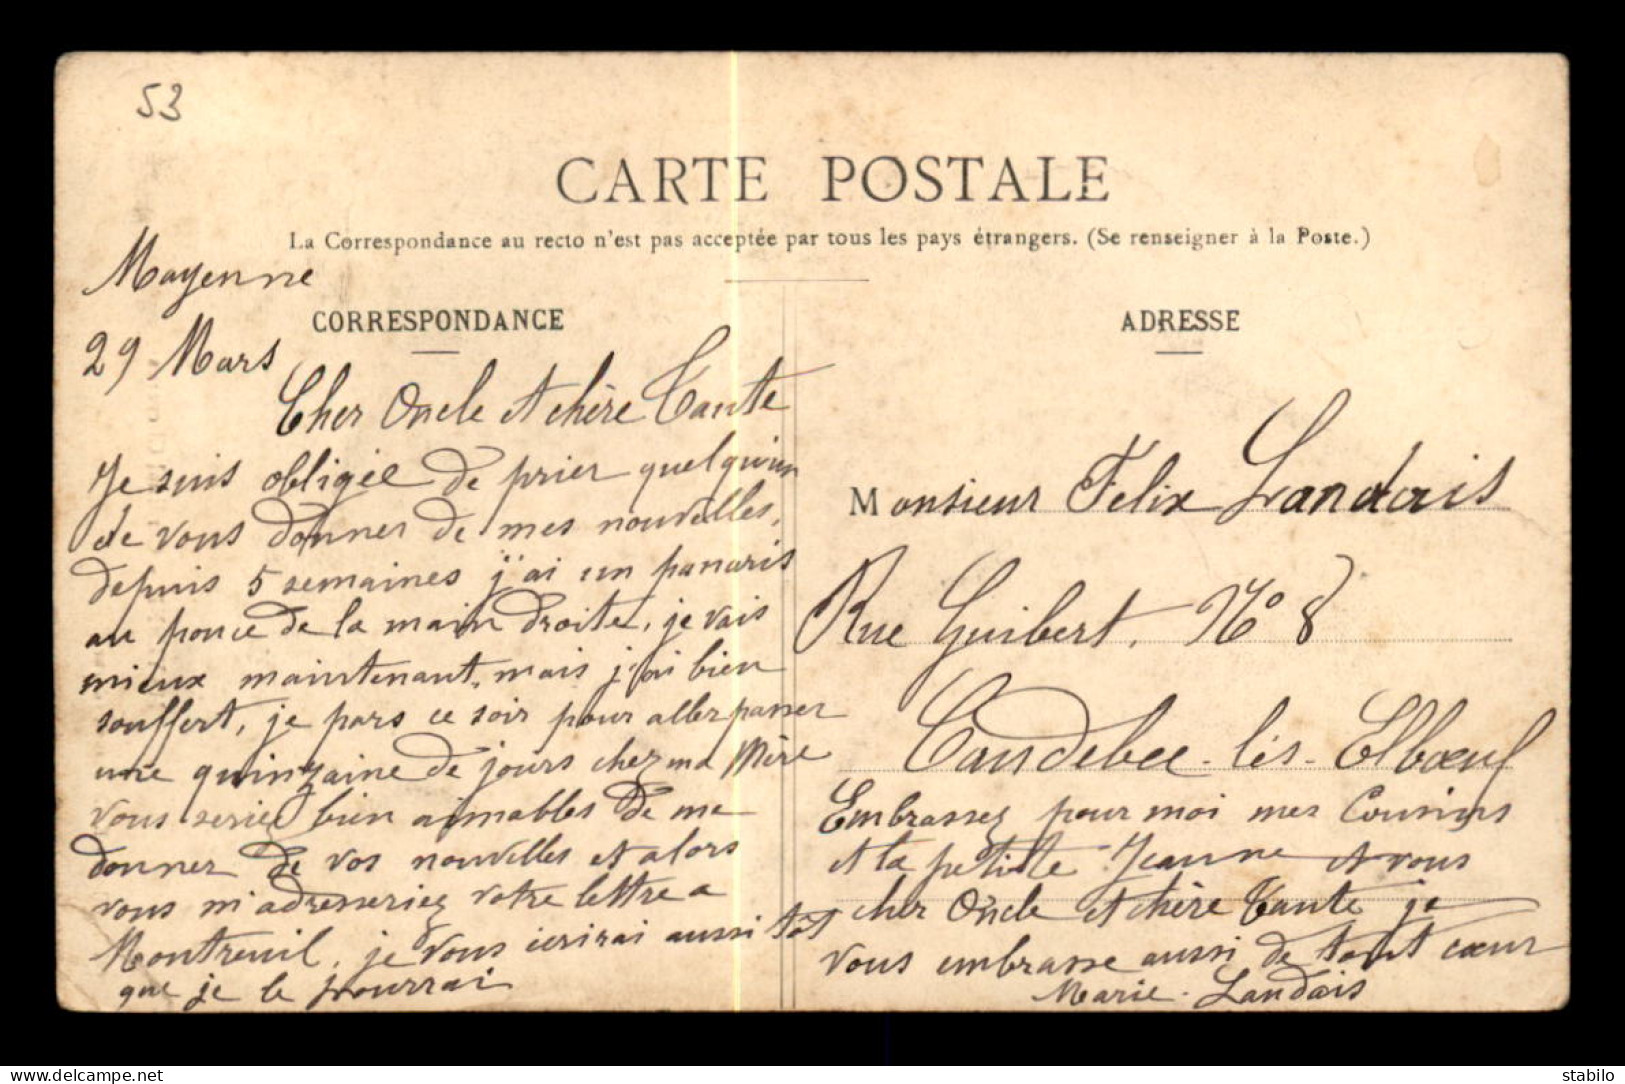 53
CARTE POSTALE
La Correspondance au recto n'est pas acceptée par tous les pays étrangers. (Se renseigner à la Poste.)
CORRESPONDANCE
Mayenne
29 Mars
Cher Oncle et chère Tante
Je suis obligée de prier quelqu'un
de vous donner de mes nouvelles,
depuis 5 semaines j'ai un panaris
au pouce de la main droite, je vais
mieux maintenant, mais j'ai bien
souffert, je pars ce soir pour aller passer
une quinzaine de jours chez ma Mère
vous seriez bien aimables de me
donner de vos nouvelles et alors
vous m'adresseriez votre lettre a
Montreuil, je vous ecrirai aussi tôt
que je le pourrai
ADRESSE
Monsieur Felix Landais
Rue Guibert. No 8
Caudebec-lès-Elbœuf
Embrassez pour moi mes Cousins
et la petite Jeanne et vous
cher Oncle et chère Tante je
vous embrasse aussi de tout cœur
Marie-Landais
delcampe.net
stabilo